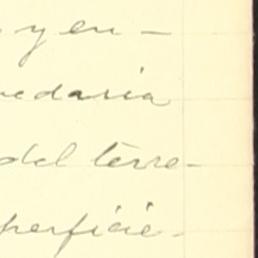 y en-
edaria
del terre-
perficie-